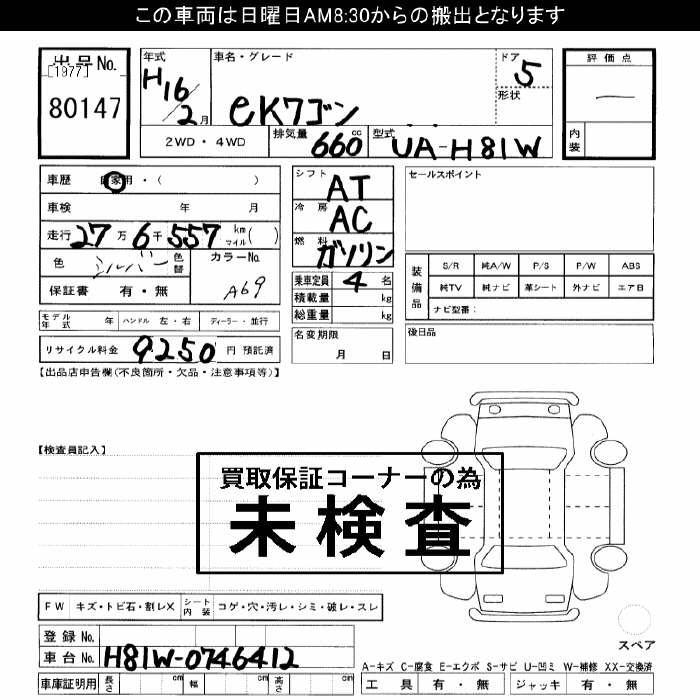 この車両は日曜日AM8:30からの搬出となります
出品No.
[1977]
80147
年式
H16/2月
車名・グレード
eKワゴン
ドア
5
形状
評価点
内装
2WD・4WD
排気量
660cc
型式
UA-H81W
車歴 自家用・( )
車検 年 月
走行 27万6千557km マイル( )
色 シルバー 色替
カラーNo. A69
保証書 有・無
モデル年式 年 ハンドル 左・右 ディーラー・並行
リサイクル料金 9250円 預託済
シフト AT
冷房 AC
燃料 ガソリン
乗車定員 4名
積載量 kg
総重量 kg
名変期限
月 日
セールスポイント
装備品
S/R 純A/W P/S P/W ABS
純TV 純ナビ 革シート 外ナビ エアB
ナビ型番:
後日品
【出品店申告欄(不良箇所・欠品・注意事項等)】
【検査員記入】
買取保証コーナーの為
未検査
FW キズ・トビ石・割レX シート内装 コゲ・穴・汚レ・シミ・破レ・スレ
登録No.
車台No. H81W-0746412
車庫証明用 長さ cm 幅 cm 高さ cm
スペア
A-キズ C-腐食 E-エクボ S-サビ U-凹ミ W-補修 XX-交換済
工具 有・無 ジャッキ 有・無